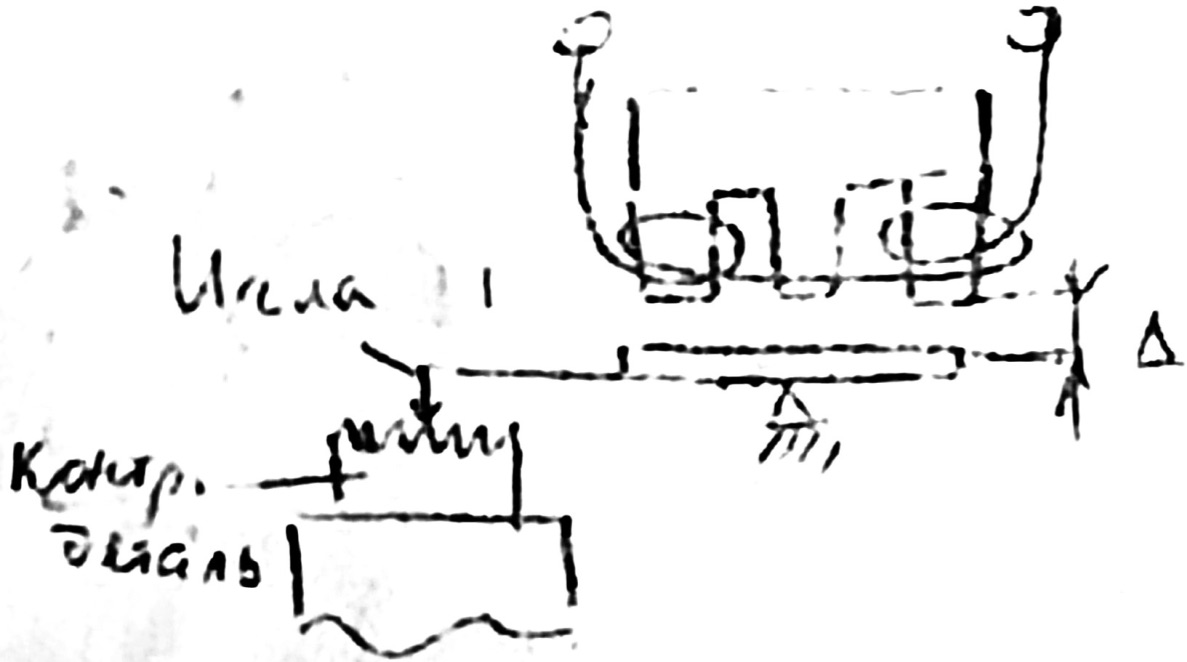 Игла
Δ
Контр.
деталь